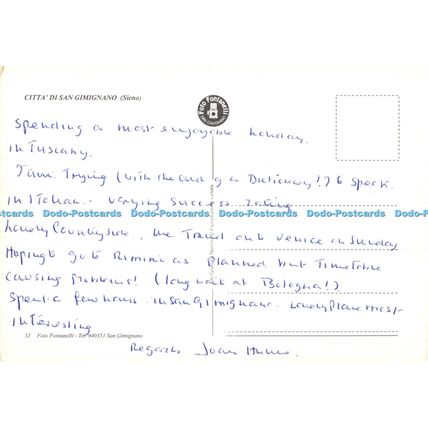 CITTA' DI SAN GIMIGNANO (Siena)
Foto Fontanelli
Spending a most enjoyable holiday
in Tuscany.
I am Trying (with the aid of a Dictionary!) to speak
in Italian - varying success
Dodo-Postcards Dodo-Postcards Dodo-Postcards Dodo-Postcards
Lovely Countryside. We Travel out Venice on Sunday
Hoping to go to Rimini as Planned but Timetable
causing problems! (long wait at Bologna!)
Spent a few hours in San Gimignano. Lovely Place most-
interesting
32 Foto Fontanelli - Tel. 940351 San Gimignano
Regards Joan